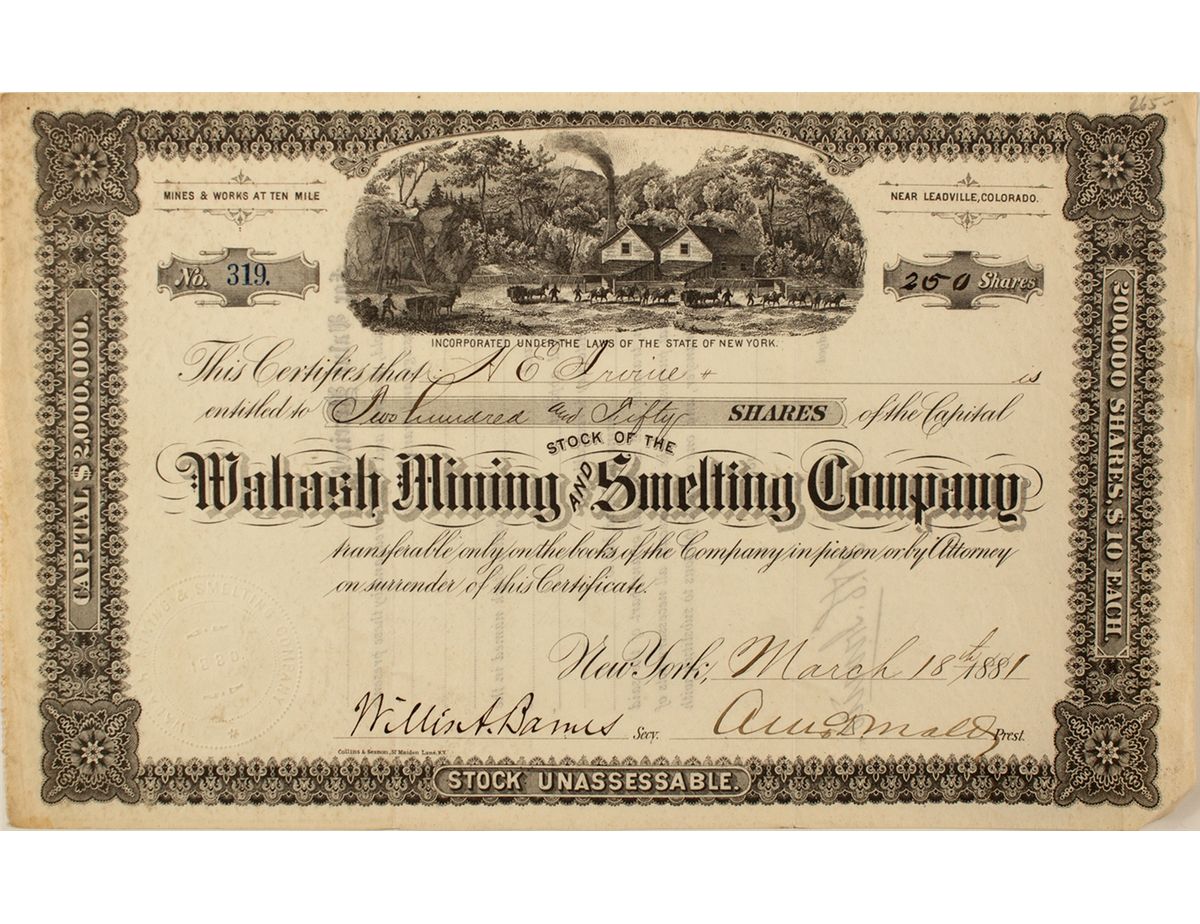 265-
MINES & WORKS AT TEN MILE
NEAR LEADVILLE, COLORADO.
No. 319.
250 Shares
INCORPORATED UNDER THE LAWS OF THE STATE OF NEW YORK.
This Certifies that H E Irvine is
entitled to Two hundred and Fifty SHARES of the Capital
STOCK OF THE
Wabash Mining AND Smelting Company
transferable only on the books of the Company in person or by Attorney
on surrender of this Certificate.
New York, March 18th 1881
Willis A. Barnes Secy.
Prest.
Collins & Sesmon, 57 Maiden Lane, N.Y.
STOCK UNASSESSABLE.
CAPITAL $2,000,000.
200,000 SHARES $10 EACH.